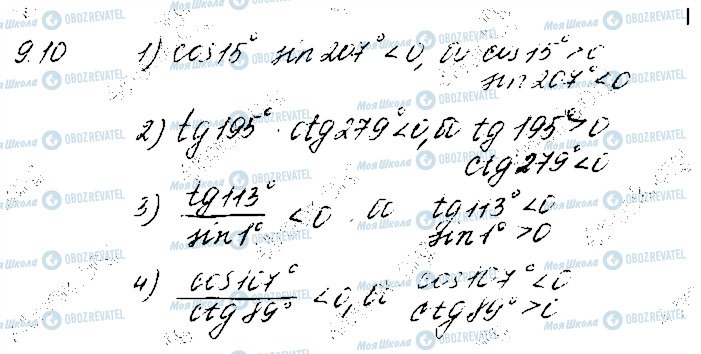 9.10 1) cos15° sin207° < 0, бо cos15° > 0
sin207° < 0
2) tg195° · ctg279° < 0, бо tg195° > 0
ctg279° < 0
3) tg113° / sin1° < 0 бо tg113° < 0
sin1° > 0
4) cos107° / ctg89° < 0, бо cos107° < 0
ctg89° > 0
Моя Школа OBOZREVATEL